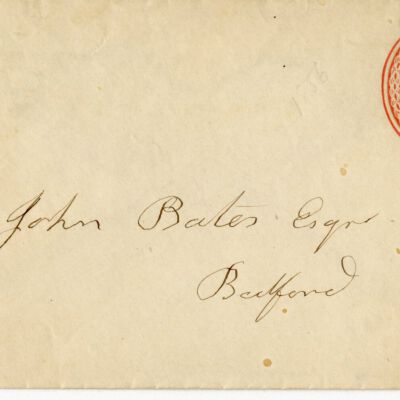 John Bates Esqr.
Bedford